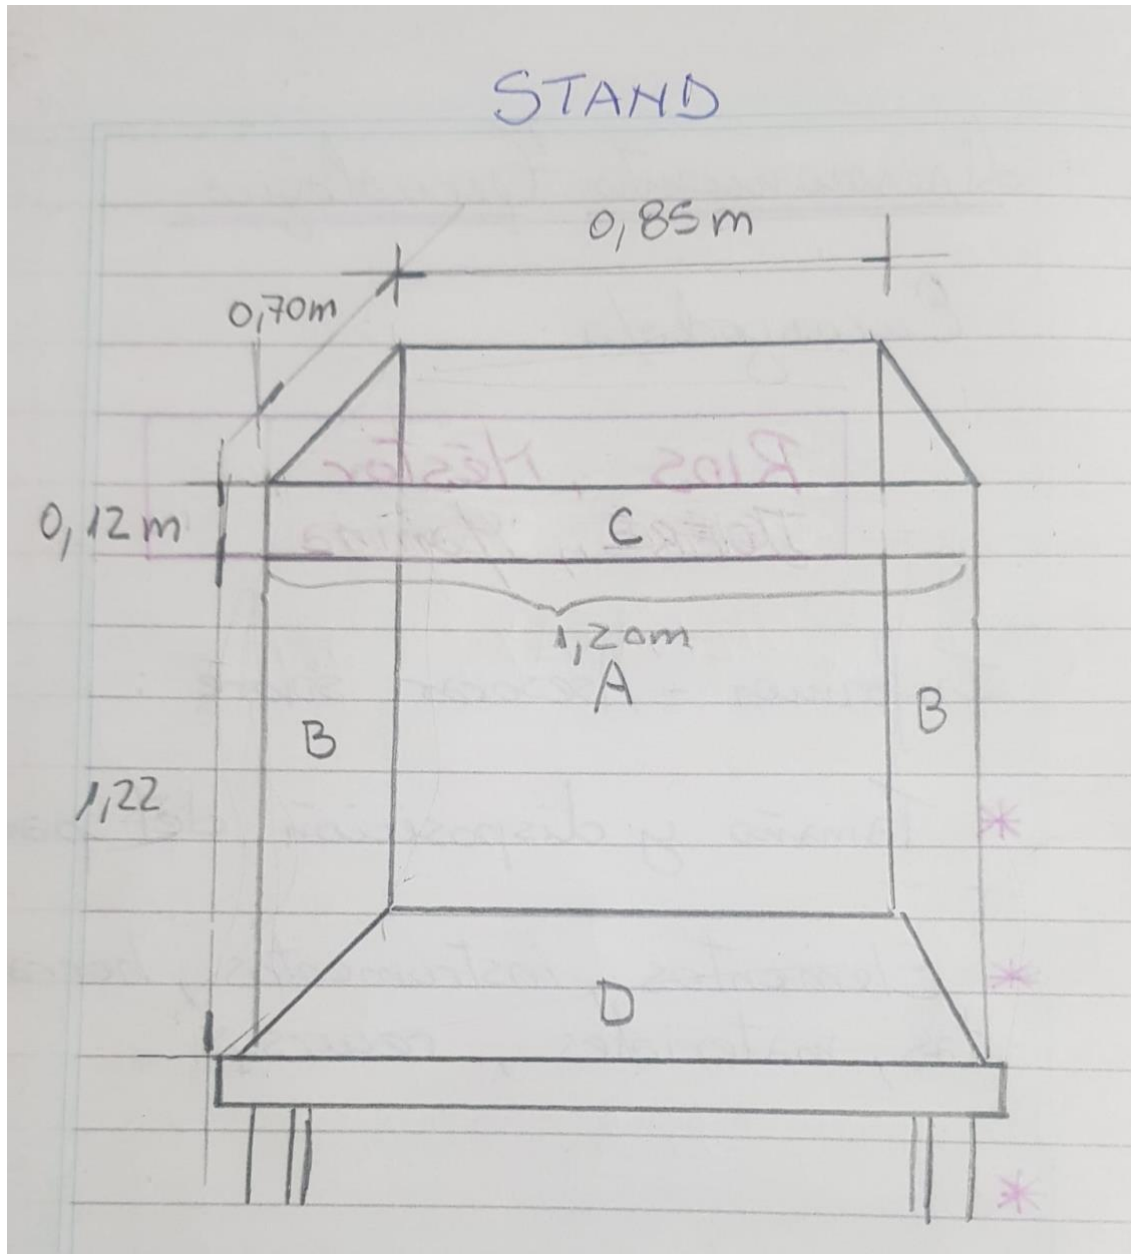 STAND
0,85m
0,70m
0,12m
C
1,20m
A
B
B
1,22
D